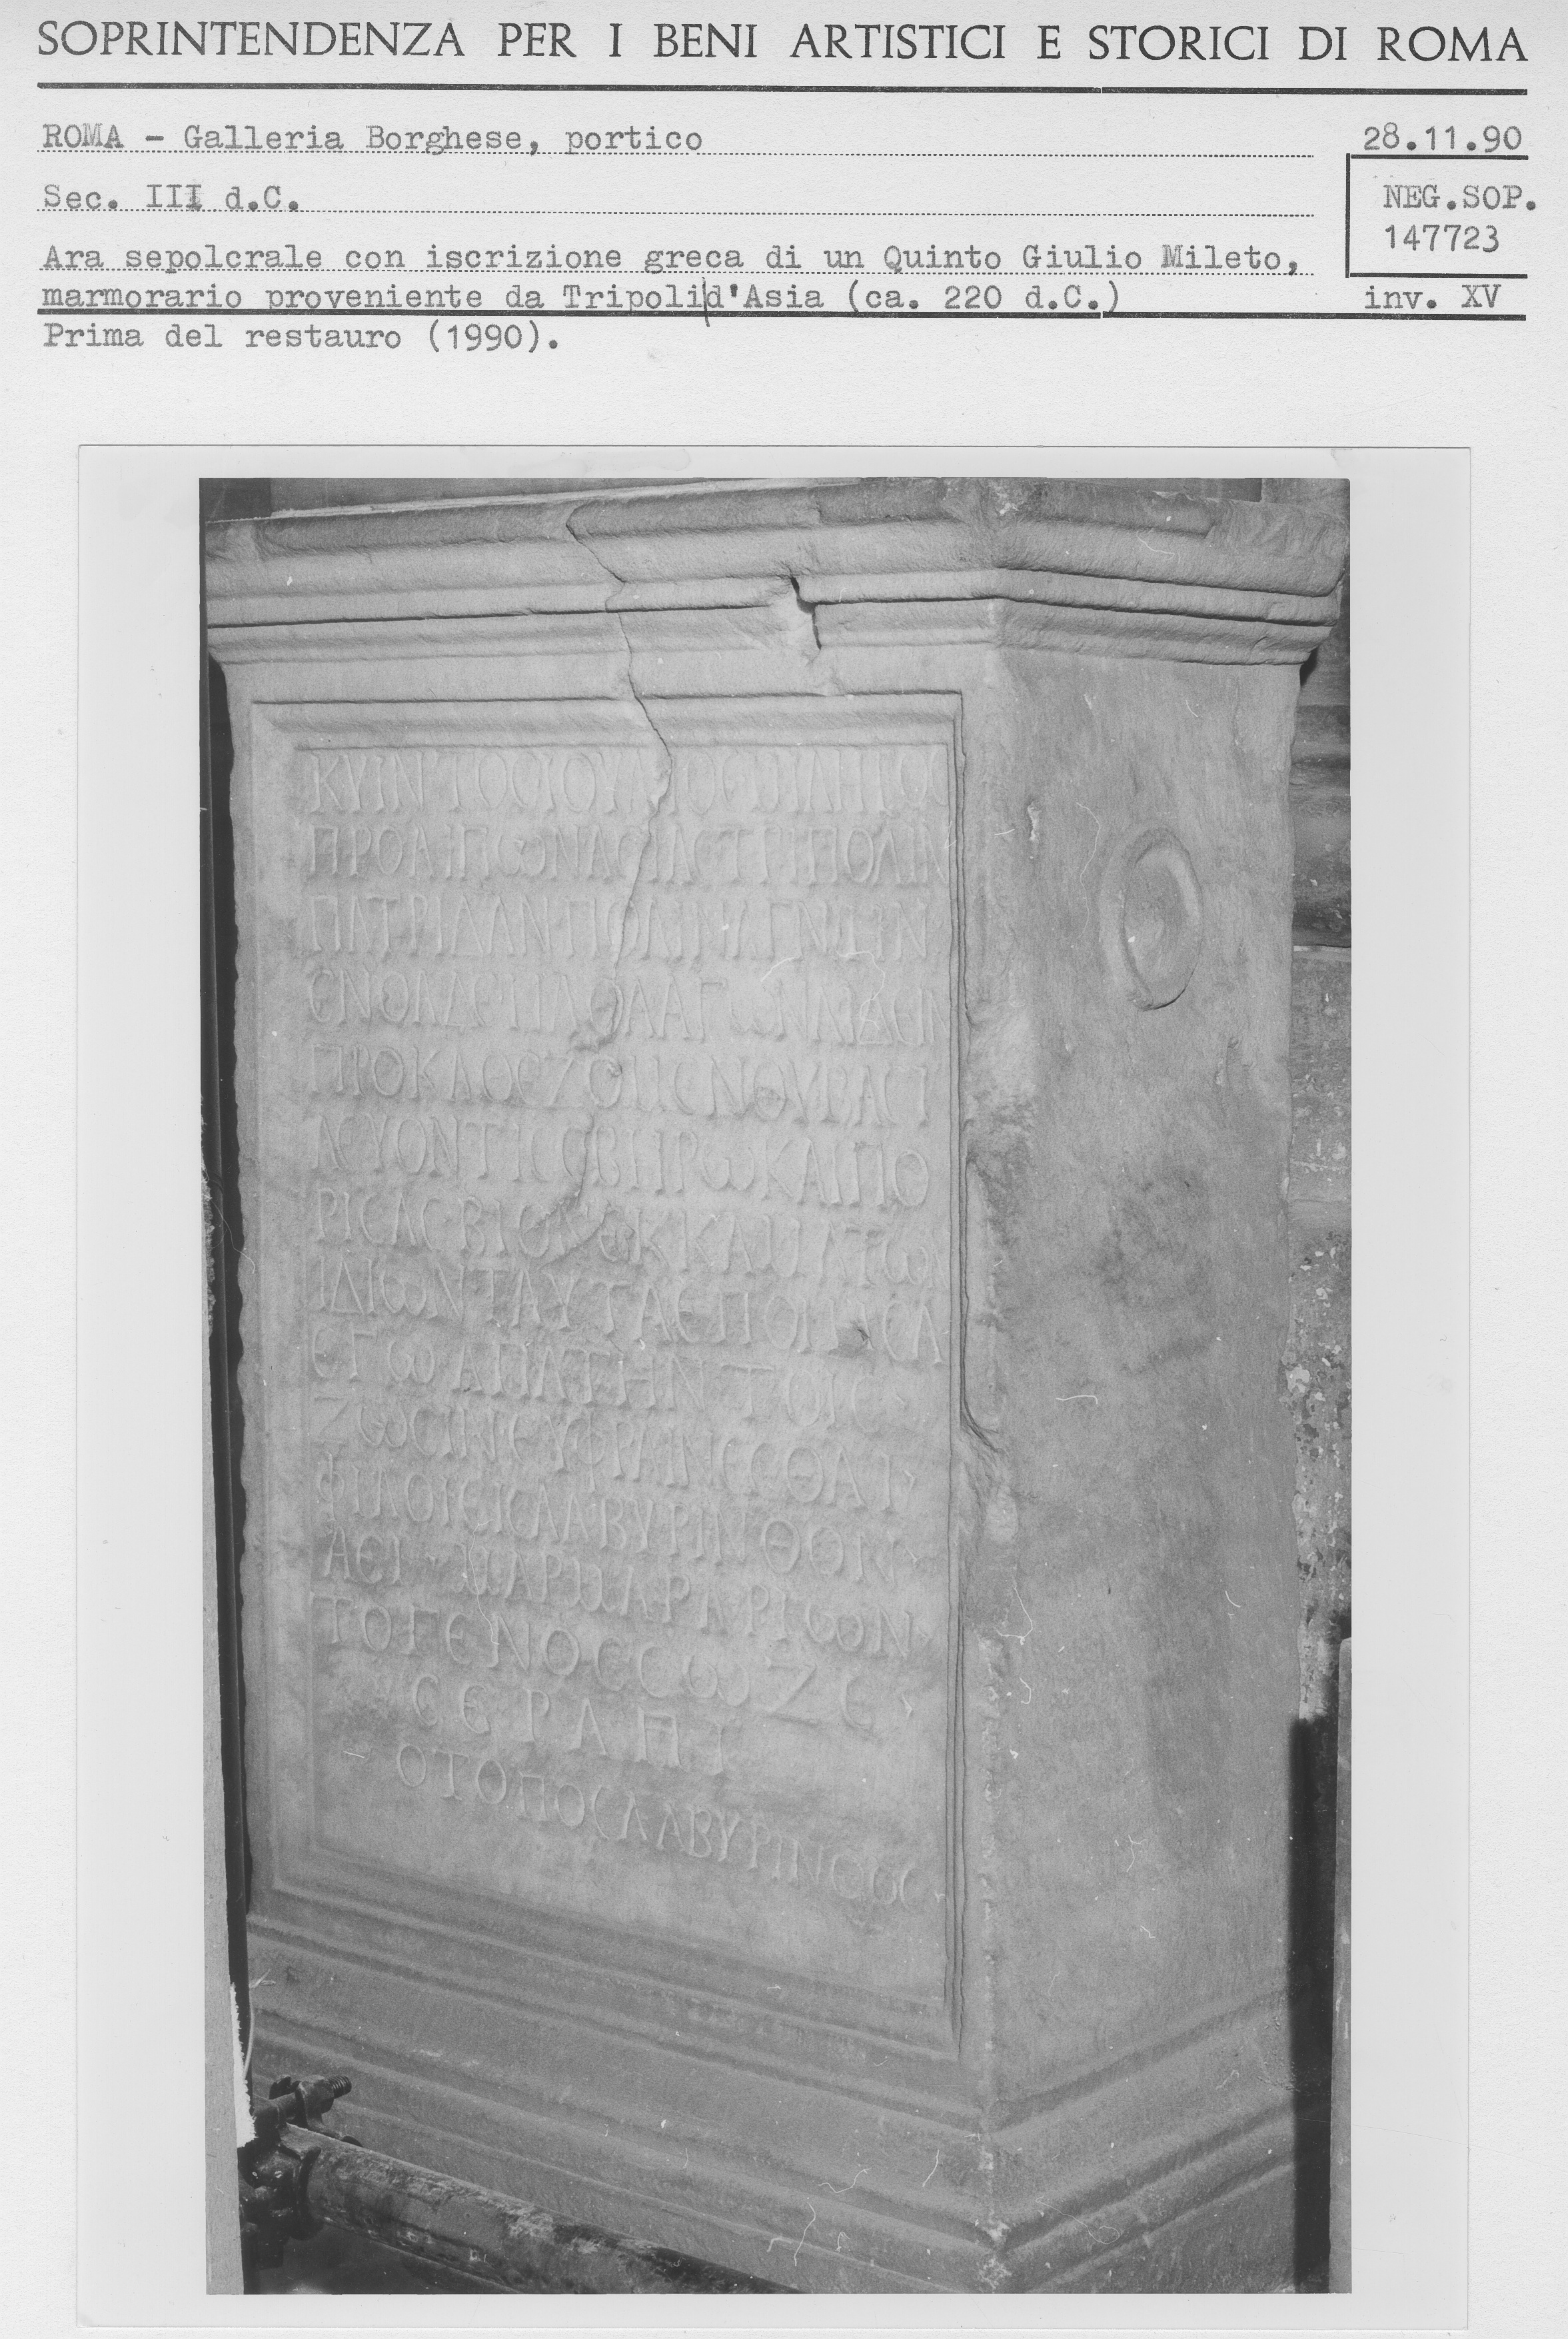 SOPRINTENDENZA PER I BENI ARTISTICI E STORICI DI ROMA
ROMA - Galleria Borghese, portico
28.11.90
Sec. III d.C.
NEG.SOP.
147723
Ara sepolcrale con iscrizione greca di un Quinto Giulio Mileto,
marmorario proveniente da Tripoli|d'Asia (ca. 220 d.C.)
inv. XV
Prima del restauro (1990).
ΚΥΙΝΤΟϹΙΟΥΛΙΟϹΜΙΛΗΤΟϹ
ΠΡΟΛΙΠωΝΑϹΙΑϹΤΡΙΠΟΛΙΝ
ΠΑΤΡΙΔΑΝΠΟΛΙΝ
ЄΝΘΑΔЄΗΛΘΑΑΓωΝΑΙΔЄΙΝ
ΠΡΟΚΑΘЄΖΟΜЄΝΟΥΒΑϹΙ
ΛЄΥΟΝΤΙϹЄΒΗΡωΚΑΙΠΟ
ΡΙϹΑϹΒΙΟΝЄΚΚΑΜΑΤωΝ
ΙΔΙωΝΤΑΥΤΑЄΠΟΙΗϹΑ
ЄΓωΑΠΑΤΗΝΤΟΙϹ
ΖωϹΙΝЄΥΦΡΑΙΝЄϹΘΑΙ
ΦΙΛΟΙЄΙϹΛΑΒΥΡΙΝΘΟΝ
ΑЄΙ ΜΑΡΜΑΡΑΡΙωΝ
ΤΟΓЄΝΟϹϹωΖЄ
ϹЄΡΑΠΙ
ΟΤΟΠΟϹΛΑΒΥΡΙΝΘΟϹ